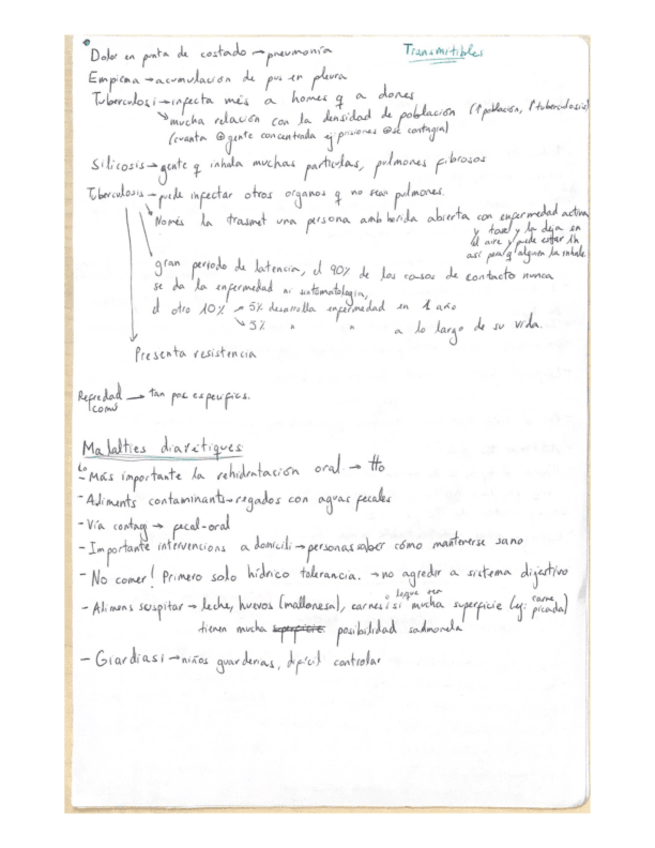 Transmitibles
Dolor en punta de costado → pneumonía
Empiema → acumulación de pus en pleura
Tuberculosi → infecta més a homes q a dones
↘ mucha relación con la densidad de población (↑población, ↑tuberculosis)
(cuanta ⊕ gente concentrada ej prisiones ⊕ se contagia)
Silicosis → gente q inhala muchas particulas, pulmones fibrosos
Tuberculosis → puede infectar otros organos q no sean pulmones.
Només la trasmet una persona amb herida abierta con enfermedad activa
y tose y la deja en
el aire y puede estar 1h
así para q alguien la inhale
gran periodo de latencia, el 90% de los casos de contacto nunca
se da la enfermedad ni sintomatología,
el otro 10% → 5% desarrolla enfermedad en 1 año
↘ 5% " " a lo largo de su vida.
Presenta resistencia
Refredad → tan poc especifics.
comú
Malalties diarètiques
Lo
- Más importante la rehidratación oral → tto
- Aliments contaminants → regados con aguas fecales
- Vía contag → fecal-oral
- Importante intervencions a domicili → personas saber cómo mantenerse sano
- No comer! Primero solo hídrico tolerancia. → no agredir a sistema digestivo
- Alimens sospitar → leche, huevos (mallonesa), carnes i si mucha superficie (ej: carne picada)
tienen mucha superficie posibilidad salmonela
- Giardiasi → niños guarderias, dificil controlar